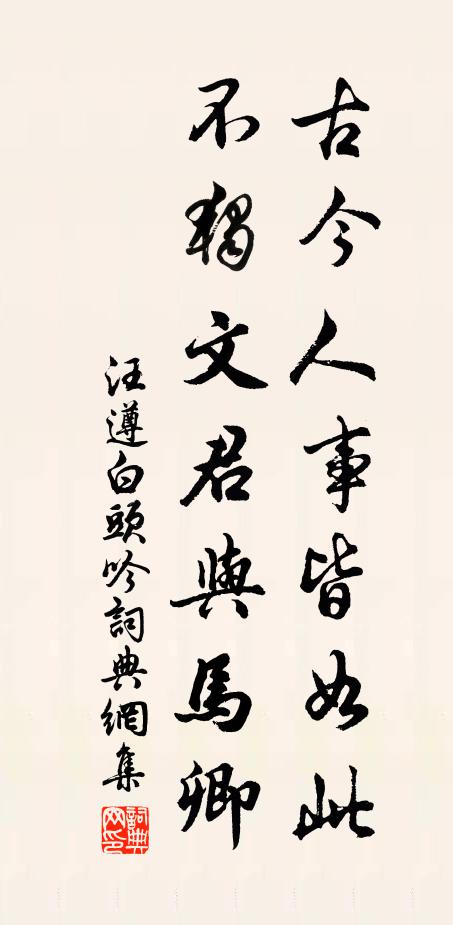 古今人事皆如此
不獨文君與馬卿
汪遵白頭吟詞典網集
詞典網印